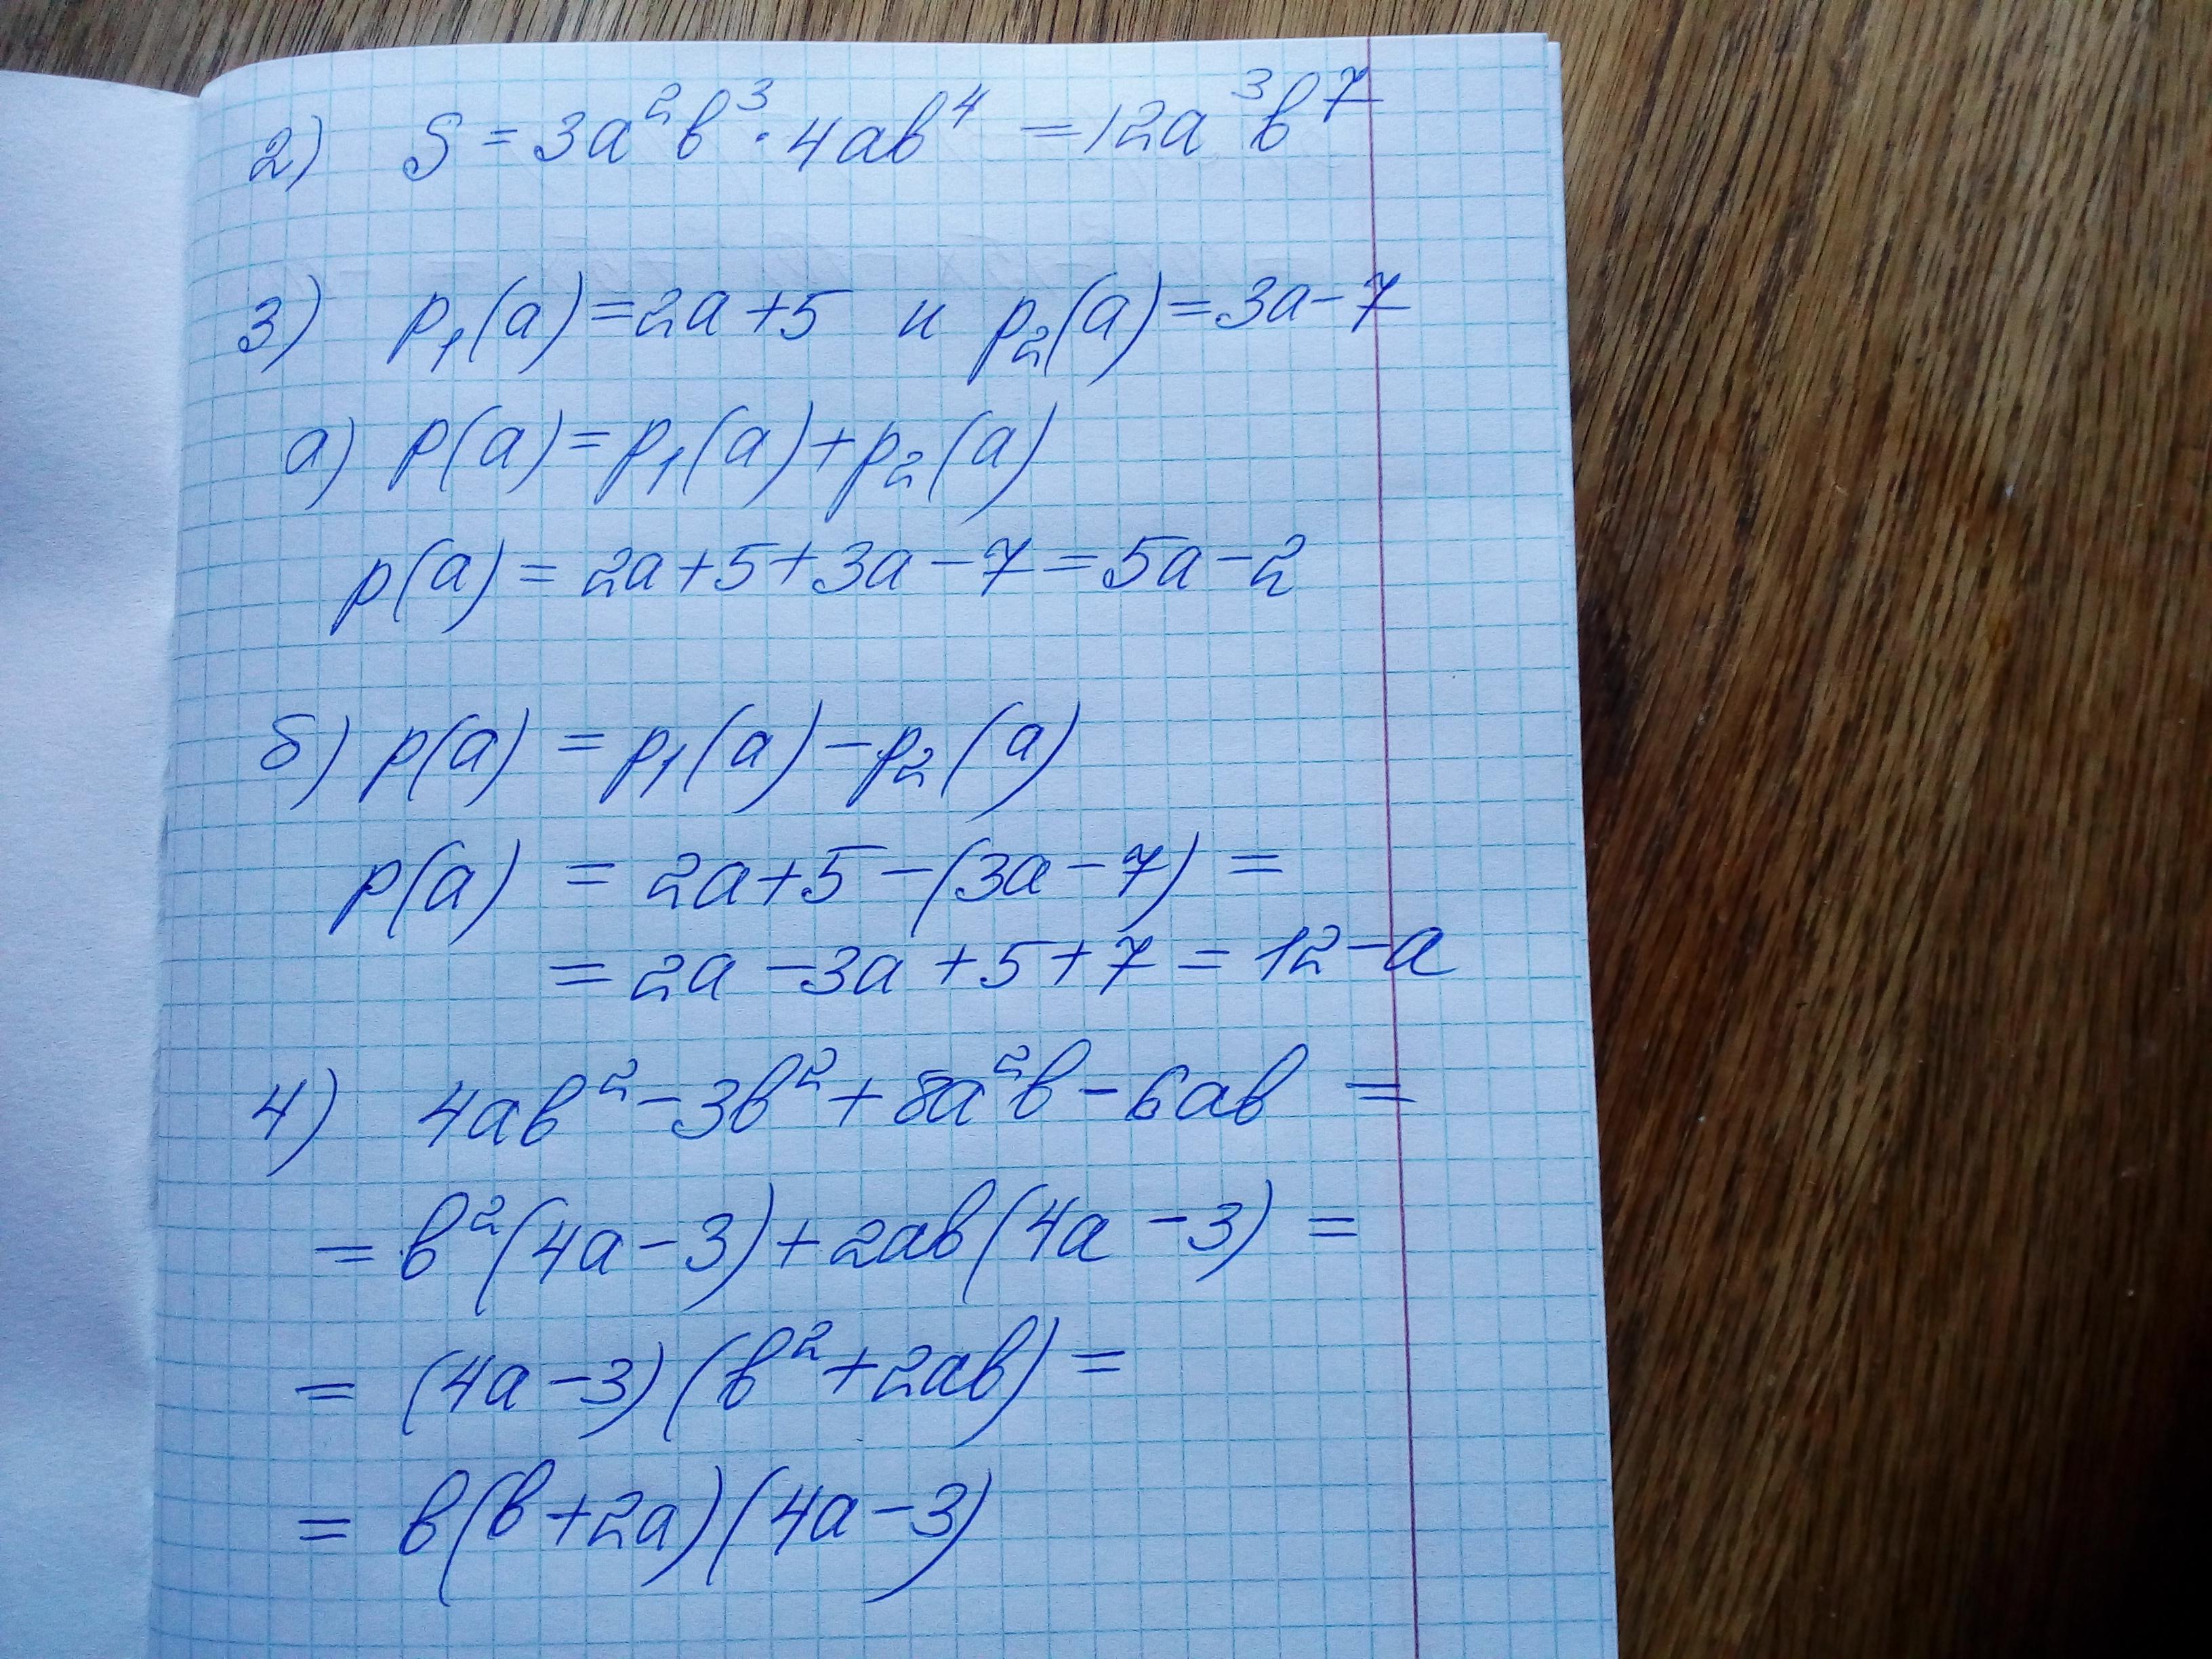 2) S = 3a²b³ · 4ab⁴ = 12a³b⁷
3) p₁(a) = 2a + 5 и p₂(a) = 3a - 7
а) p(a) = p₁(a) + p₂(a)
p(a) = 2a + 5 + 3a - 7 = 5a - 2
б) p(a) = p₁(a) - p₂(a)
p(a) = 2a + 5 - (3a - 7) =
= 2a - 3a + 5 + 7 = 12 - a
4) 4ab² - 3b² + 8a²b - 6ab =
= b²(4a - 3) + 2ab(4a - 3) =
= (4a - 3)(b² + 2ab) =
= b(b + 2a)(4a - 3)